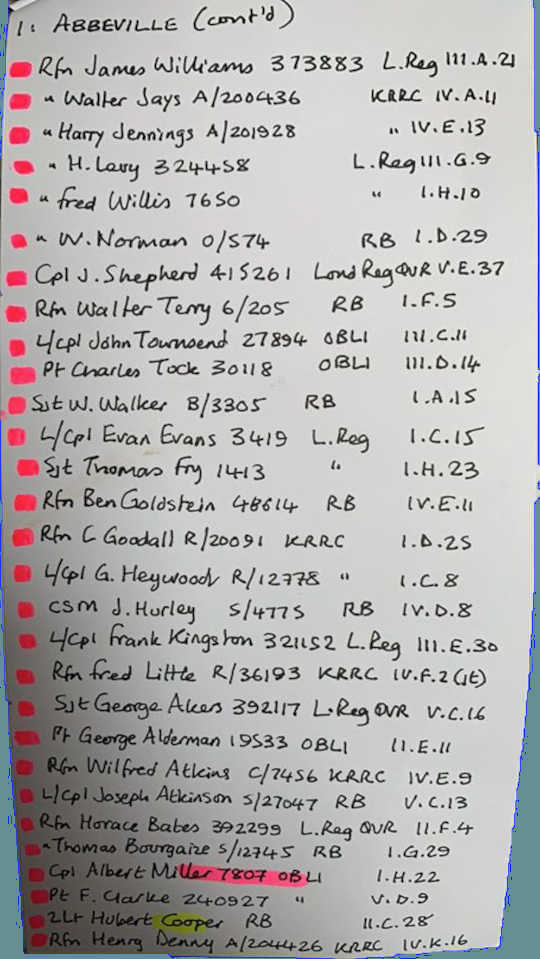 1: ABBEVILLE (cont'd)
Rfn James Williams 373883 L.Reg III.A.21
" Walter Jays A/200436 KRRC IV.A.11
" Harry Jennings A/201928 " IV.E.13
" H. Lavy 324458 L.Reg III.G.9
" fred Willis 7650 " I.H.10
" W. Norman O/574 RB I.D.29
Cpl J. Shepherd 415261 Lond Reg QVR V.E.37
Rfn Walter Terry 6/205 RB I.F.5
L/cpl John Townsend 27894 OBLI III.C.11
Pt Charles Tock 30118 OBLI III.D.14
Sjt W. Walker B/3305 RB I.A.15
L/Cpl Evan Evans 3419 L.Reg I.C.15
Sjt Thomas Fry 1413 " I.H.23
Rfn Ben Goldstein 48614 RB IV.E.11
Rfn C Goodall R/20091 KRRC I.D.25
L/Cpl G. Heywood R/12778 " I.C.8
CSM J. Hurley S/4775 RB IV.D.8
L/Cpl frank Kingston 321152 L.Reg III.E.30
Rfn fred Little R/36193 KRRC IV.F.2 (Jt)
Sjt George Akers 392117 L.Reg QVR V.C.16
Pt George Alderman 19533 OBLI II.E.11
Rfn Wilfred Atkins C/7456 KRRC IV.E.9
L/Cpl Joseph Atkinson S/27047 RB V.C.13
Rfn Horace Bates 392299 L.Reg QVR II.F.4
" Thomas Bourgaize S/12745 RB I.G.29
Cpl Albert Miller 7807 OBLI I.H.22
Pt F. Clarke 240927 " V.D.9
2Lt Hubert Cooper RB II.C.28
Rfn Henry Denny A/204426 KRRC IV.K.16